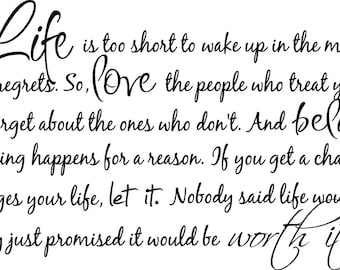 Life is too short to wake up in the m
regrets. So, love the people who treat y
rget about the ones who don't. And beli
ing happens for a reason. If you get a cha
ges your life, let it. Nobody said life wou
y just promised it would be worth it